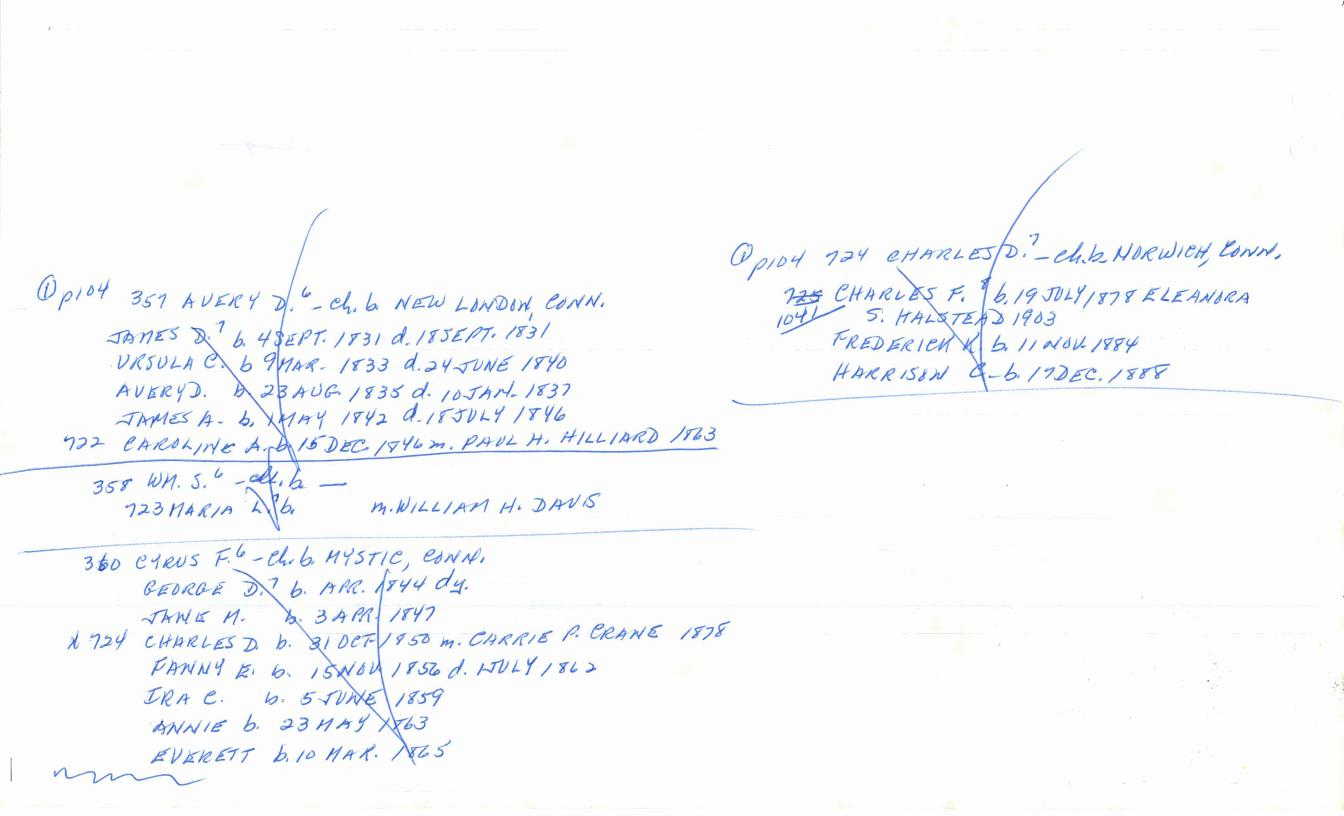 ① p104 357 AVERY D.⁶ - Ch. b. NEW LONDON, CONN.
JAMES D.⁷ b. 4 SEPT. 1831 d. 18 SEPT. 1831
URSULA C. b 9 MAR. 1833 d. 24 JUNE 1840
AVERY D. b 23 AUG 1835 d. 10 JAN. 1837
JAMES A. b. 1 MAY 1842 d. 18 JULY 1846
722 CAROLINE A. b 15 DEC. 1846 m. PAUL H. HILLIARD 1863
358 WM. S.⁶ - ch. b —
723 MARIA L.⁷ b. m. WILLIAM H. DAVIS
360 CYRUS F.⁶ - Ch. b. MYSTIC, CONN.
GEORGE D.⁷ b. APR. 1844 dy.
JANE M. b. 3 APR 1847
X 724 CHARLES D. b. 31 OCT 1850 m. CARRIE P. CRANE 1878
FANNY E. b. 15 NOV 1856 d. JULY 1862
IRA C. b. 5 JUNE 1859
ANNIE b. 23 MAY 1863
EVERETT b. 10 MAR. 1865
① p104 724 CHARLES D.⁷ - Ch. b. NORWICH, CONN.
725 CHARLES F.⁸ b. 19 JULY 1878 ELEANORA
1041 S. HALSTEAD 1903
FREDERICK K. b. 11 NOV. 1884
HARRISON C. b. 17 DEC. 1888